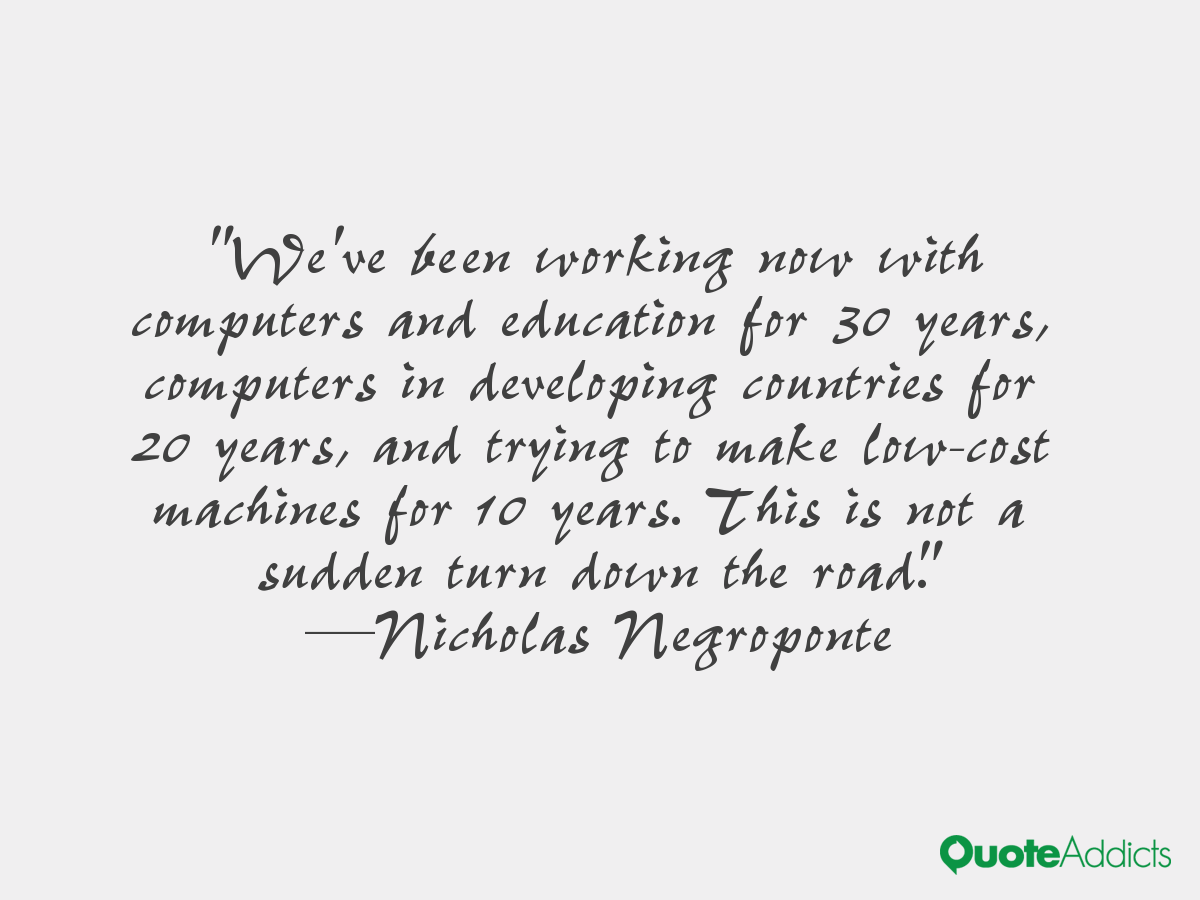 "We've been working now with
computers and education for 30 years,
computers in developing countries for
20 years, and trying to make low-cost
machines for 10 years. This is not a
sudden turn down the road."
—Nicholas Negroponte
QuoteAddicts